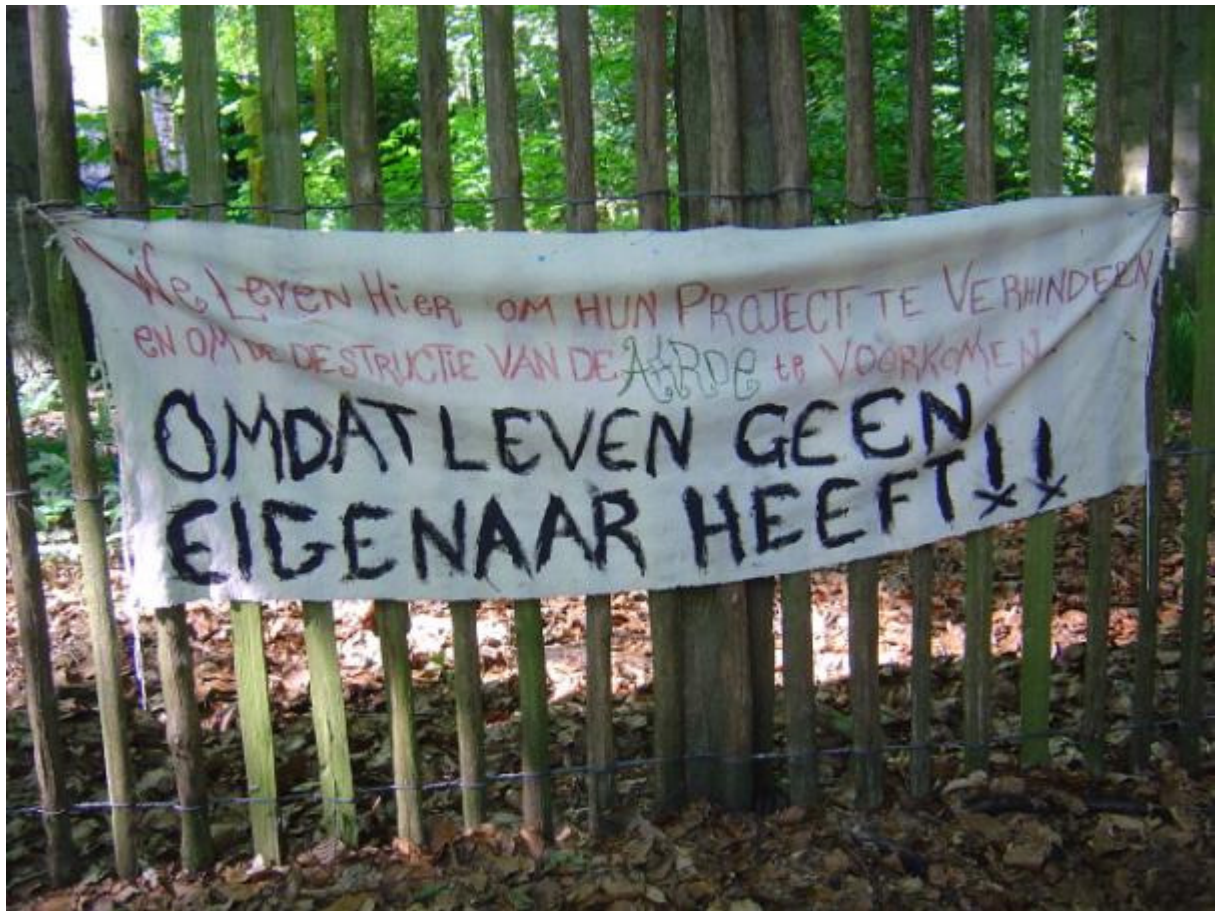 We Leven Hier om hun Project te Verhinderen
en om de destructie van de AARDE te voorkomen
OMDAT LEVEN GEEN
EIGENAAR HEEFT!!